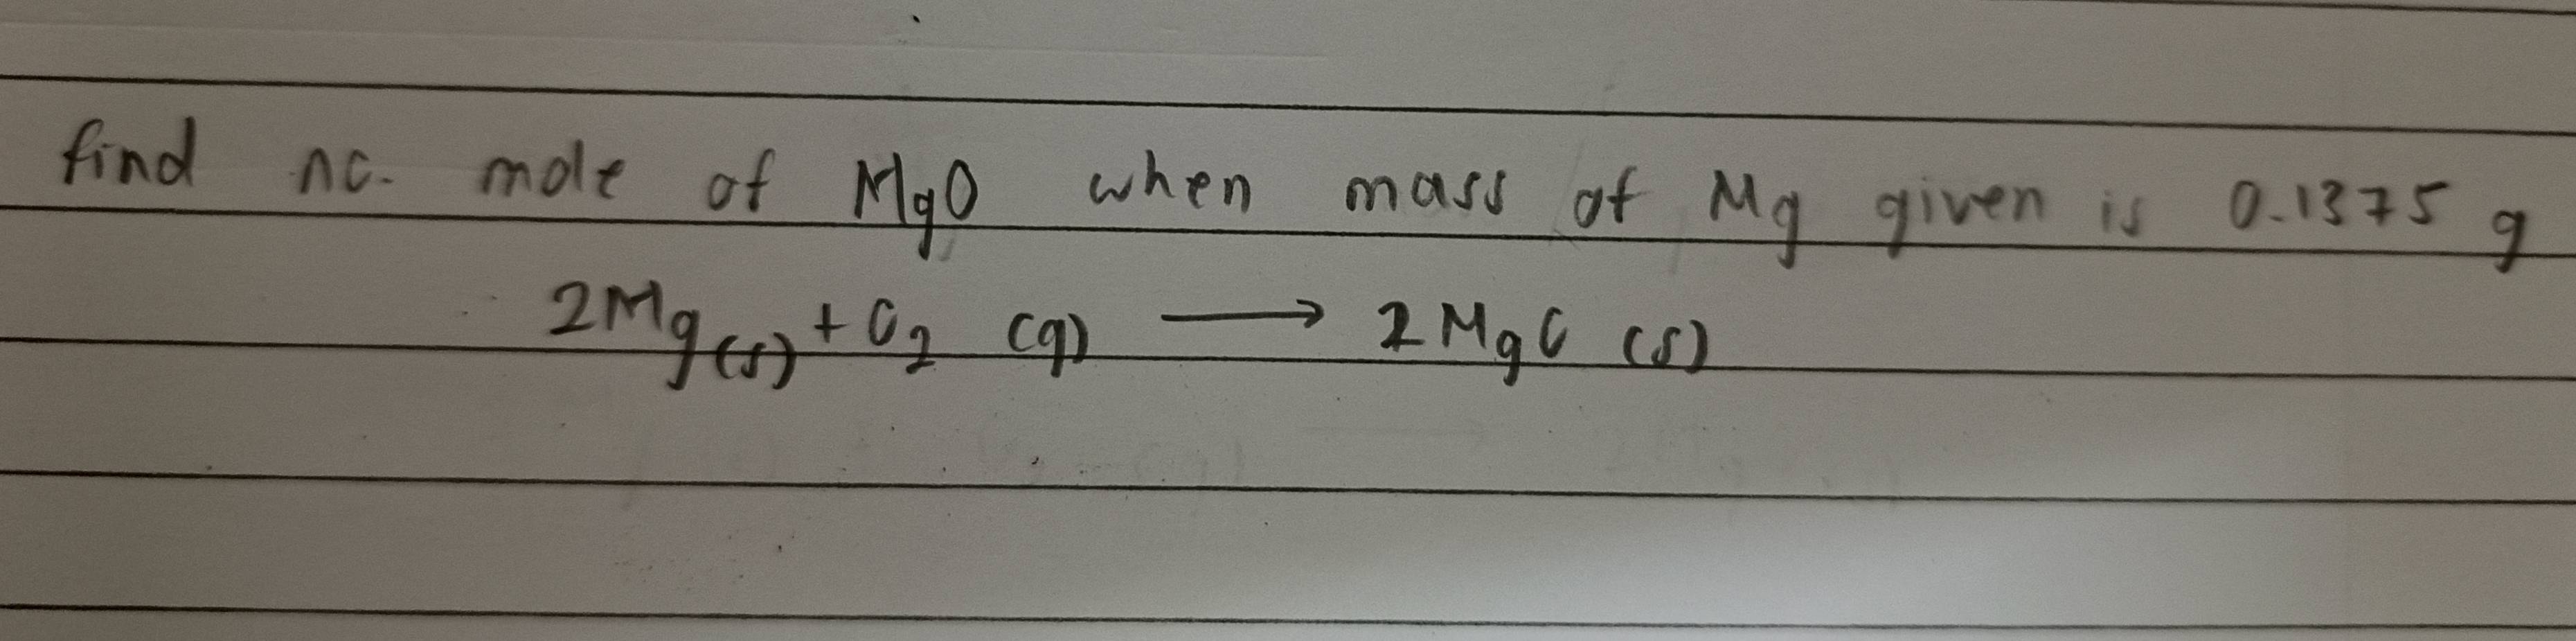 find no. mole of MgO when mass of Mg given is 0.1375 g
2Mg(s) + O2 (g) → 2MgO (s)